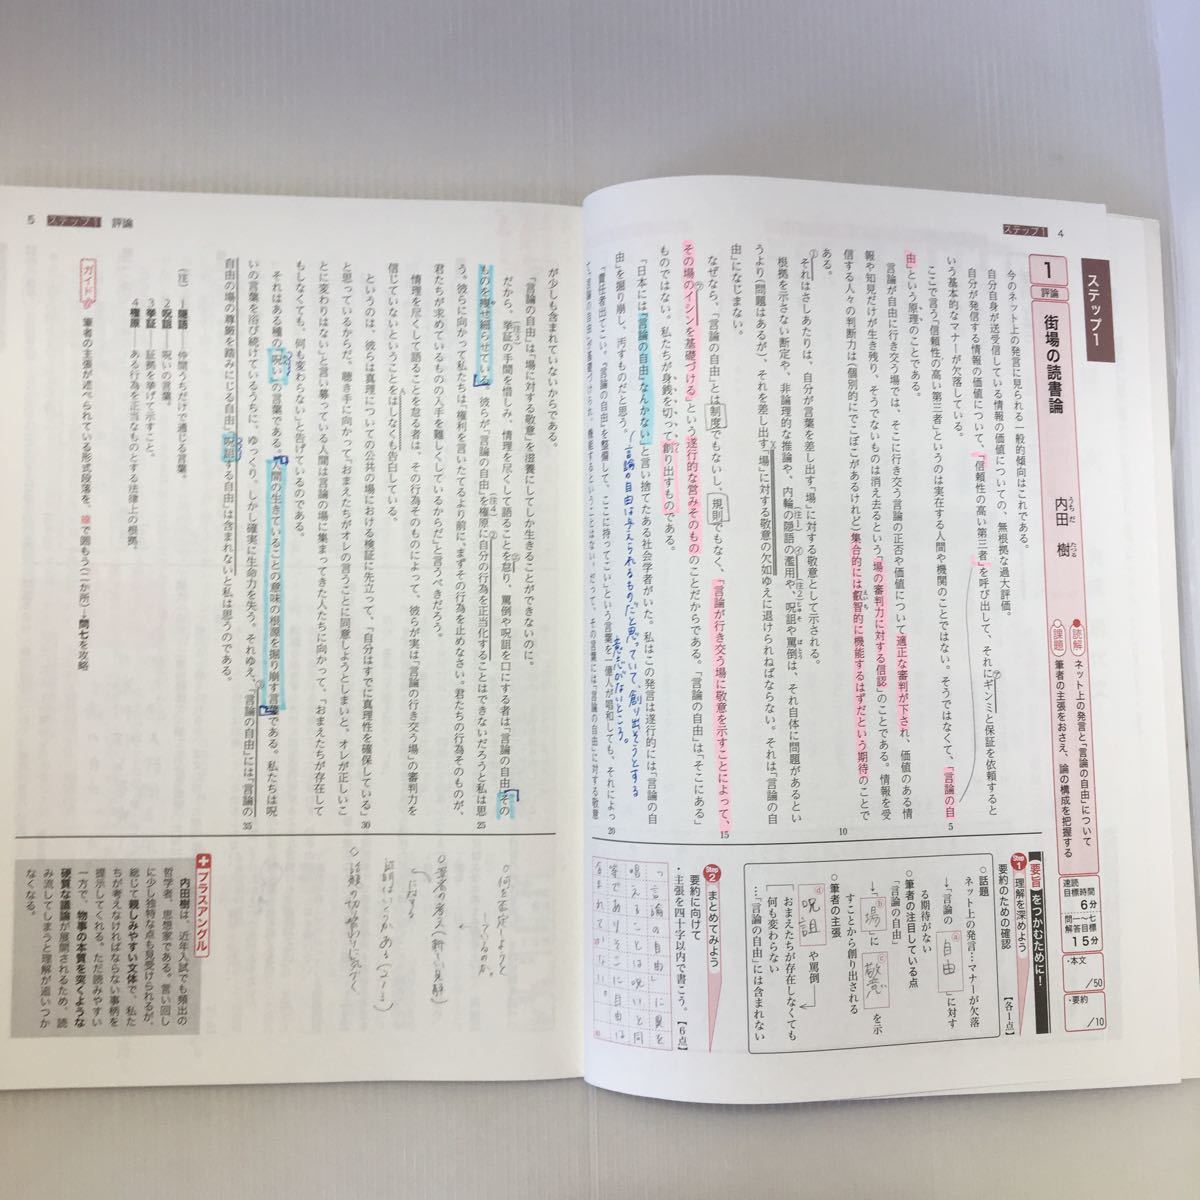 ステップ1 4
ステップ1
1
評論
街場の読書論
内田 樹
うちだ たつる
読解
課題
ネット上の発言と「言論の自由」について
筆者の主張をおさえ、論の構成を把握する
速読
目標時間
6分
問一〜七
解答目標
15分
・本文
/50
・要約
/10
今のネット上の発言に見られる一般的傾向はこれである。
自分自身が送受信している情報の価値についての、無根拠な過大評価。
自分が発信する情報の価値について、「信頼性の高い第三者」を呼び出して、それに㋐ギンミと保証を依頼すると
いう基本的なマナーが欠落している。
ここで言う「信頼性の高い第三者」というのは実在する人間や機関のことではない。そうではなくて、「言論の自
由」という原理のことである。
言論が自由に行き交う場では、そこに行き交う言論の正否や価値について適正な審判が下され、価値のある情
報や知見だけが生き残り、そうでないものは消え去るという「場の審判力に対する信認」のことである。情報を受
信する人々の判断力は（個別的にでこぼこがあるけれど）集合的には叡智的に機能するはずだという期待のことで
ある。
①それはさしあたりは、自分が言葉を差し出す「場」に対する敬意として示される。
根拠を示さない断定や、非論理的な推論や、内輪の隠語の濫用や、呪詛や罵倒は、それ自体に問題があるとい
うより（問題はあるが）、それを差し出す「場」に対する敬意の欠如ゆえに退けられねばならない。それは「言論の自
由」になじまない。
なぜなら、「言論の自由」とは制度でもないし、規則でもなく、「言論が行き交う場に敬意を示すことによって、
その場の㋒イシンを基礎づける」という遂行的な営みそのもののことだからである。「言論の自由」は「そこにある」
ものではない。私たちが身銭を切って創り出すものである。
「日本には『言論の自由』なんかない」と言い捨てたある社会学者がいた。私はこの発言は遂行的には「言論の自
由」を掘り崩し、汚すものだと思う。
言論の自由は与えられるものだと思っていて、創り出そうとする
意志がないところ。
「責任者出てこい。『言論の自由』を整備して、ここに持ってこい」という言葉を一億人が唱和しても、それによっ
5
10
15
20
要旨をつかむために!
Step1 理解を深めよう
要約のための確認
【各1点】
○話題
ネット上の発言…マナーが欠落
→「言論の a 自由 」に対す
る期待がない
○筆者の注目している点
「言論の自由」
→「 b 場 」に c 敬意 を示
すことから創り出される
○筆者の主張
d 呪詛 や罵倒
おまえたちが存在しなくても
何も変わらない
…「言論の自由」には含まれない
Step2 まとめてみよう
要約に向けて
・主張を四十字以内で書こう。
【6点】
5 ステップ1 評論
が少しも含まれていないからである。
「言論の自由」は「場に対する敬意」を滋養にしてしか生きることができないのに。
だから、挙証の手間を惜しみ、情理を尽くして語ることを怠り、罵倒や呪詛を口にする者は「言論の自由そのも
のを痩せ細らせている。彼らが「言論の自由」を権原に自分の行為を正当化することはできないだろうと私は思
う。彼らに向かって私たちは「権利を言いたてるより前に、まずその行為を止めなさい。君たちの行為そのものが、
君たちが求めているものの入手を難しくしているからだ」と言うべきだろう。
情理を尽くして語ることを怠る者は、その行為そのものによって、彼らが実は「言論の行き交う場」の審判力を
信じていないということをはしなくも告白している。
というのは、彼らは真理についての公共の場における検証に先立って、「自分はすでに真理性を確保している」
と思っているからだ。聴き手に向かって、「おまえたちがオレの言うことに同意しようとしまいと、オレが正しいこ
とに変わりはない」と言い募っている人間は言論の場に集まってきた人たちに向かって、「おまえたちが存在して
もしなくても、何も変わらない」と告げているのである。
それはある種の「呪い」の言葉である。人間の生きていることの意味の根源を掘り崩す言葉である。私たちは呪
いの言葉を浴び続けているうちに、ゆっくり、しかし確実に生命力を失う。それゆえ、③「言論の自由」には「言論の
自由の場の尊厳を踏みにじる自由」、「呪詛する自由」は含まれないと私は思うのである。
25
30
35
(注) 1隠語―― 仲間うちだけで通じる言葉。
2呪詛―― 呪いの言葉。
3挙証―― 証拠を挙げて示すこと。
4権原―― ある行為を正当なものとする法律上の根拠。
ガイド 筆者の主張が述べられている形式段落を、線で囲もう（二か所）→問七を攻略
プラスアングル
内田樹は、近年入試でも頻出の
哲学者、思想家である。言い回し
に少し独特な点も見受けられるが、
総じて親しみやすい文体で、私た
ちが考えなければならない事柄を
提示してくれる。ただ読みやすい
一方で、物事の本質を突くような
硬質な議論が展開されるため、読
み流してしまうと理解が追いつか
なくなる。